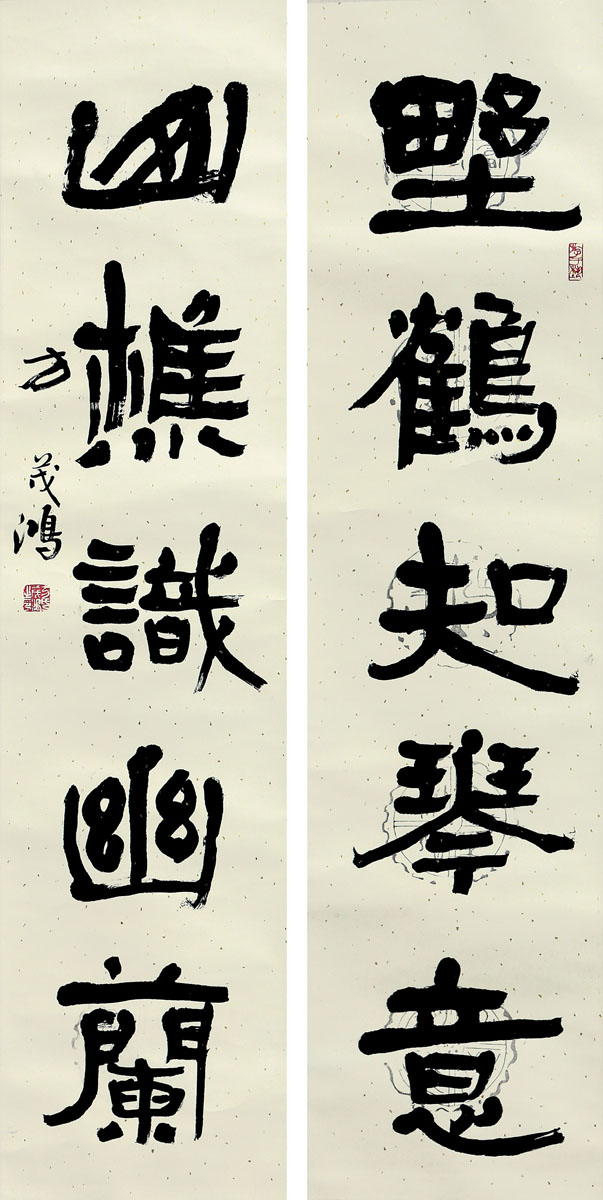 野鶴知琴意
山樵識幽蘭
方茂鴻